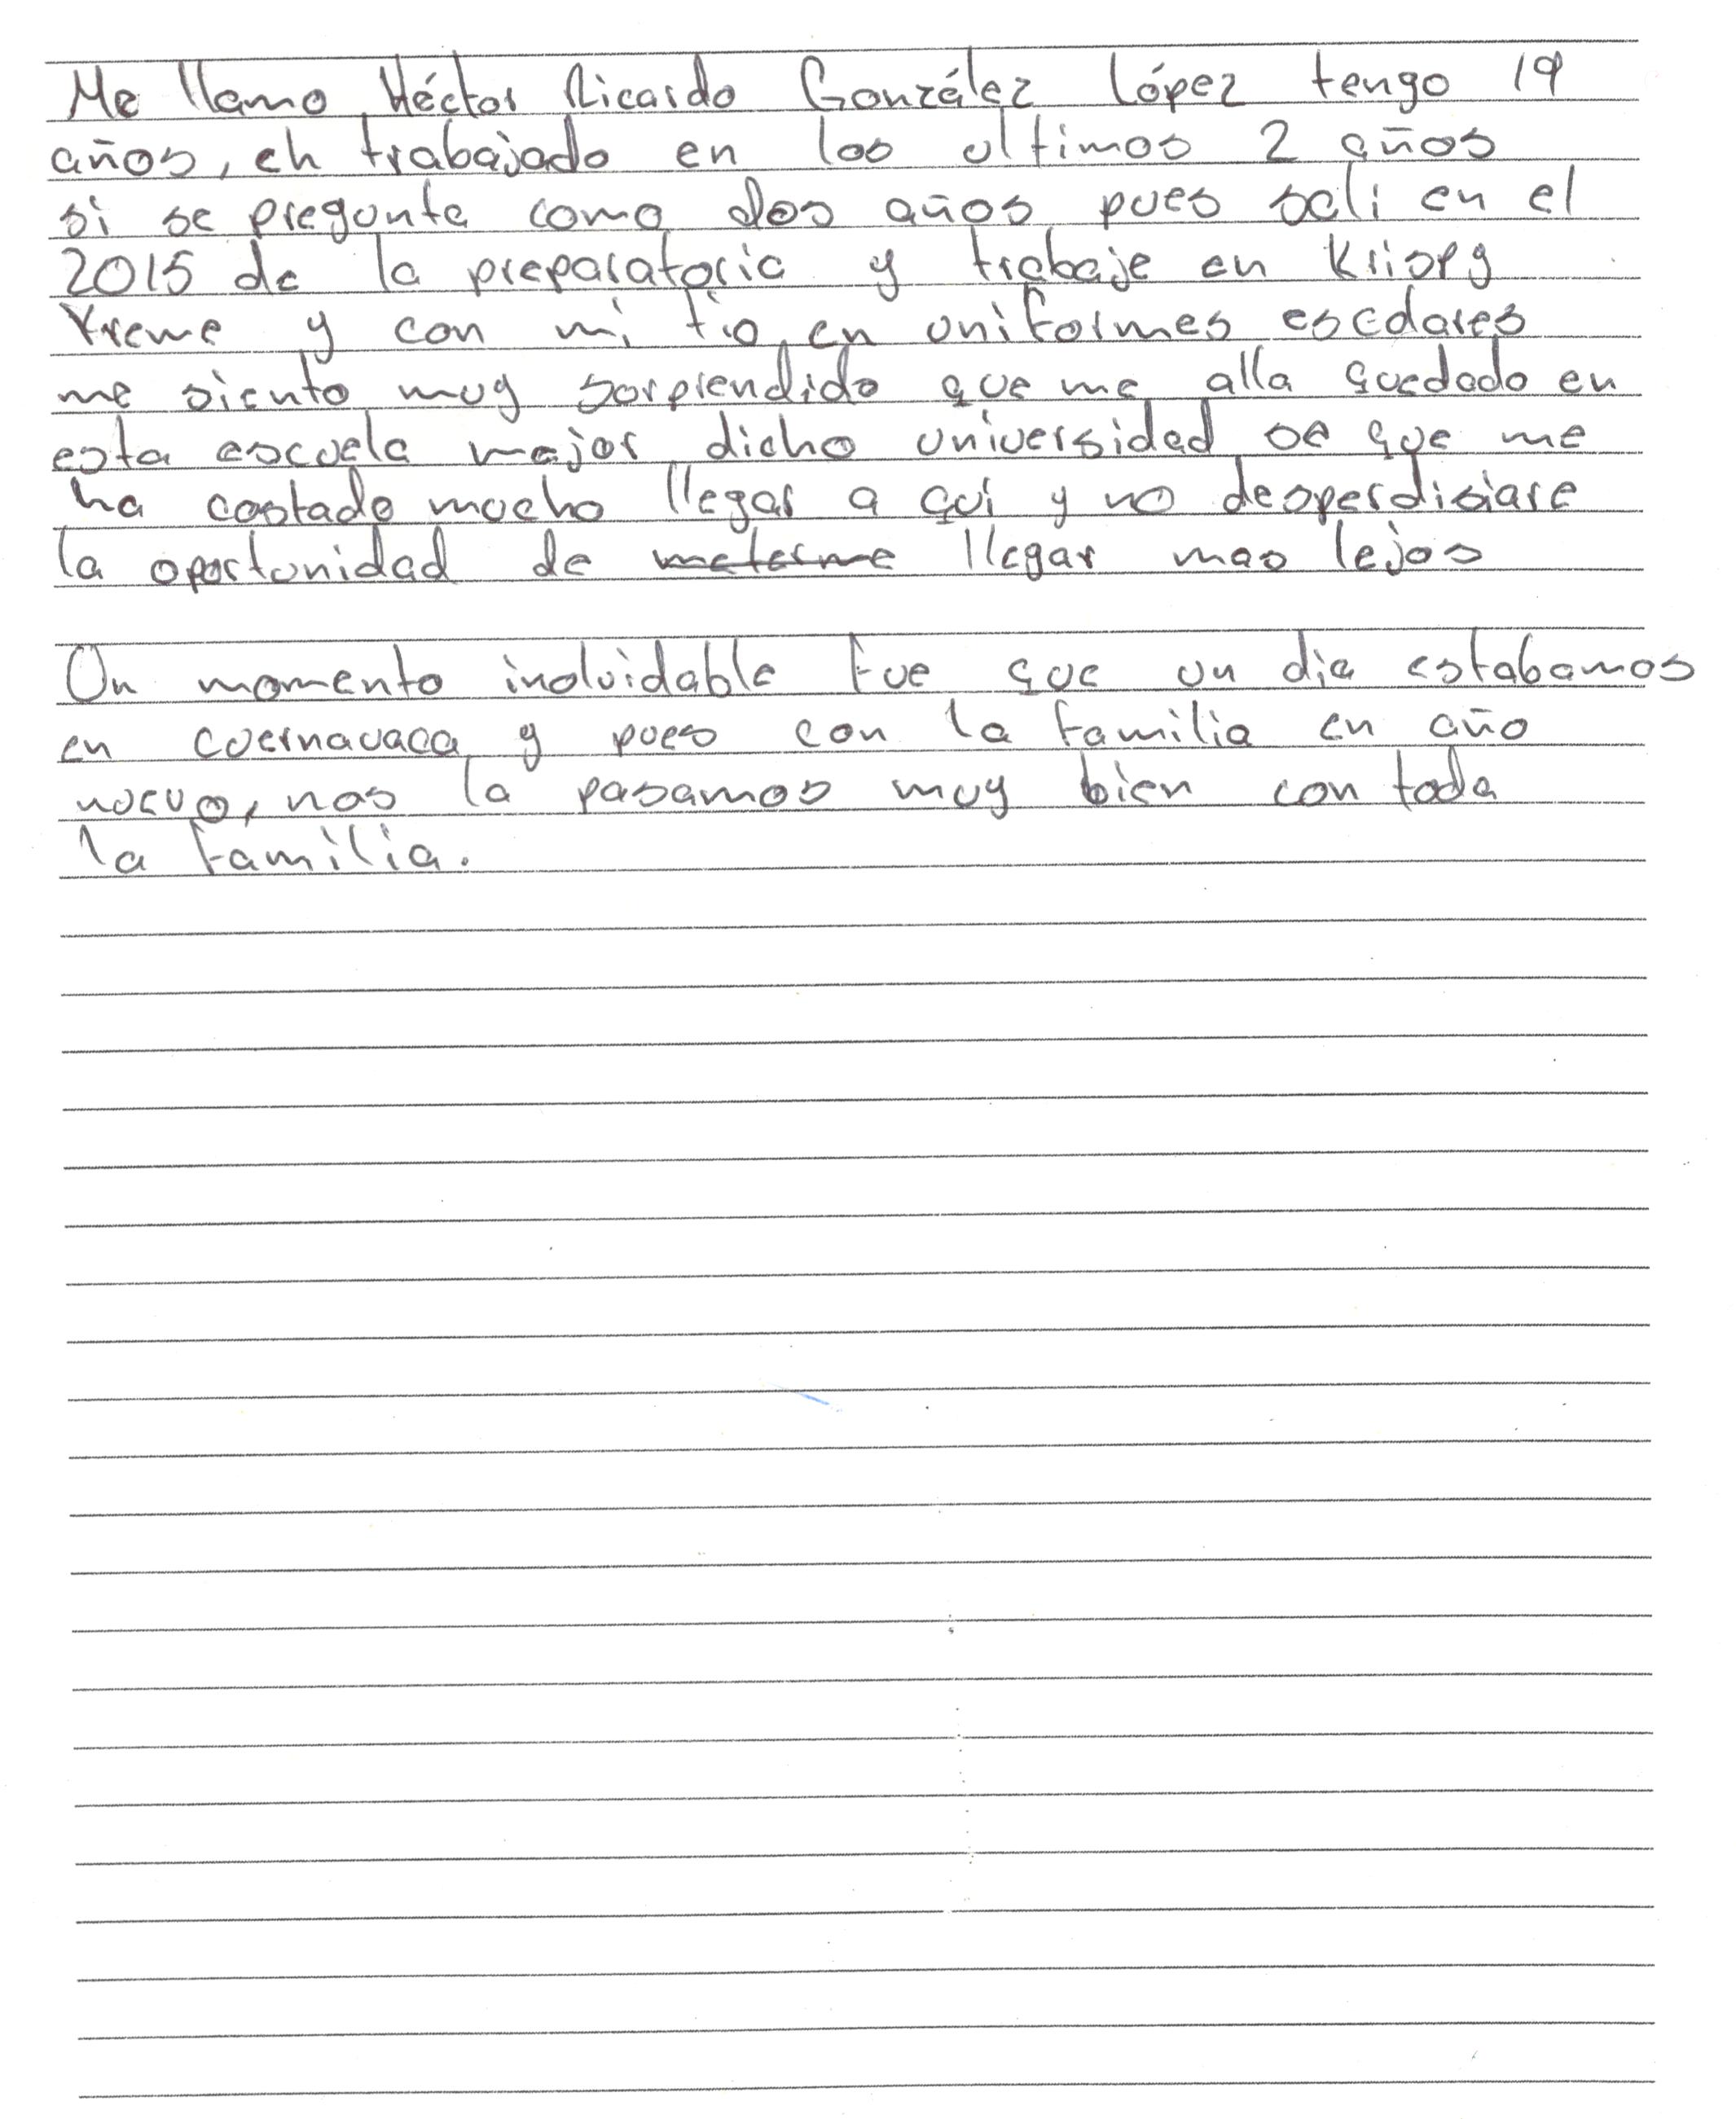 Me llamo Héctor Ricardo González López tengo 19
años, eh trabajado en los ultimos 2 años
si se pregunta como dos años pues sali en el
2015 de la preparatoria y trabaje en Krispy
Kreme y con mi tio en uniformes escolares
me siento muy sorprendido que me alla quedado en
esta escuela mejor dicho universidad se que me
ha costado mucho llegar a qui y no desperdisiare
la oportunidad de meterme llegar mas lejos
Un momento inolvidable fue que un dia estabamos
en cuernavaca y pues con la familia en año
nuevo, nos la pasamos muy bien con toda
la familia.